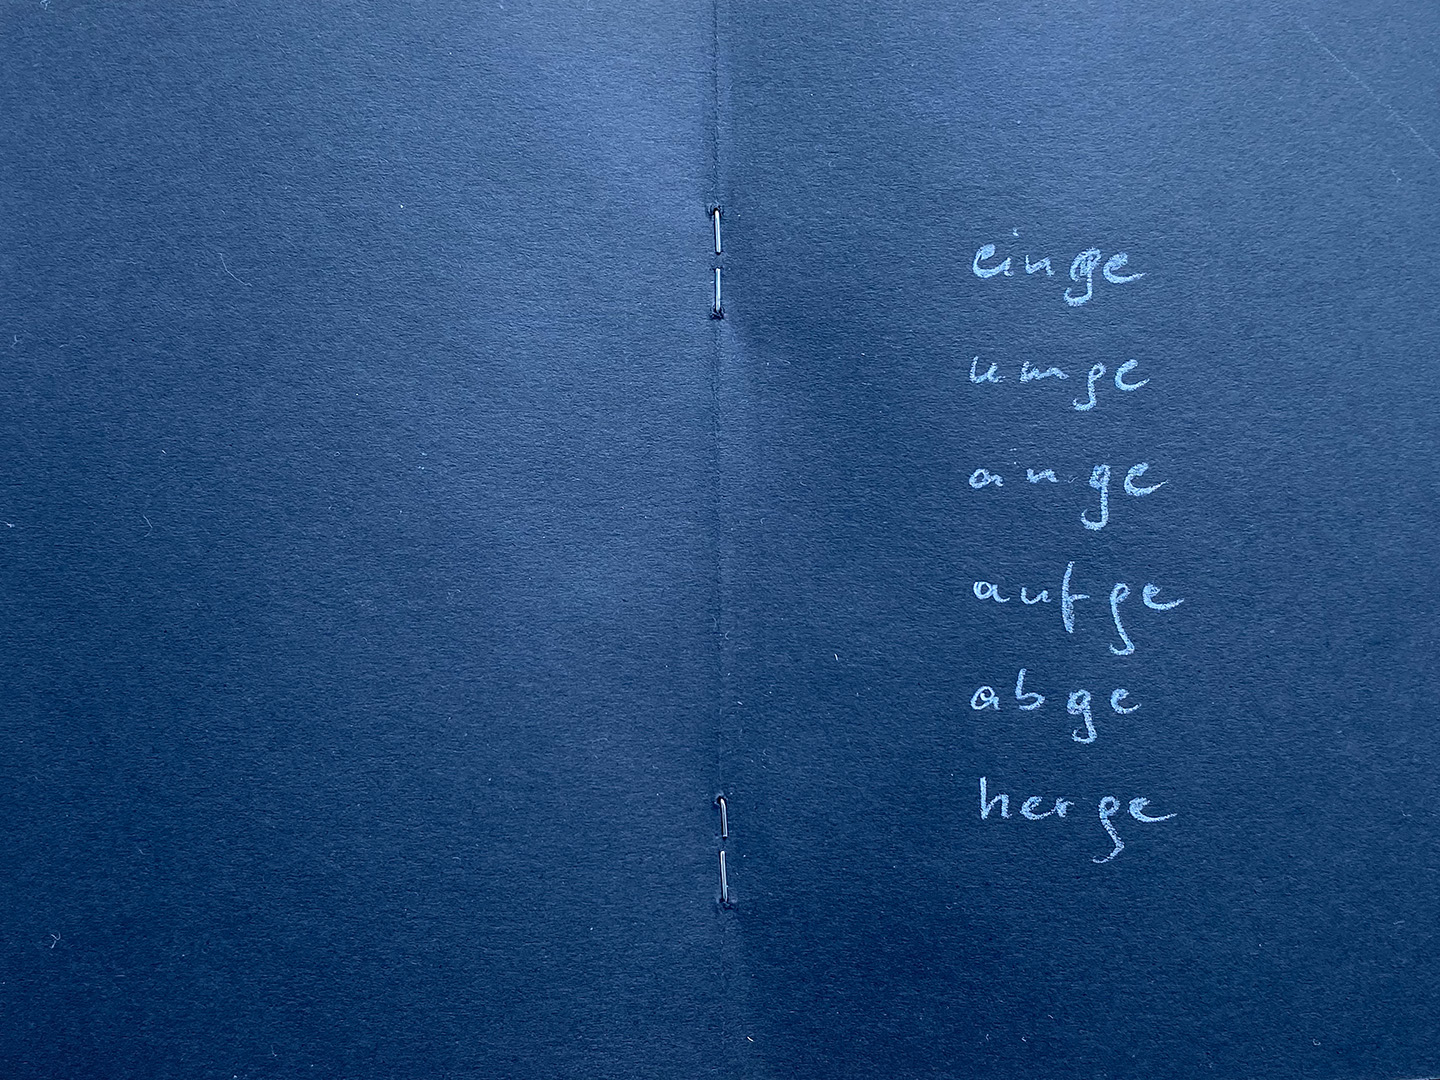 einge
umge
ange
aufge
abge
herge